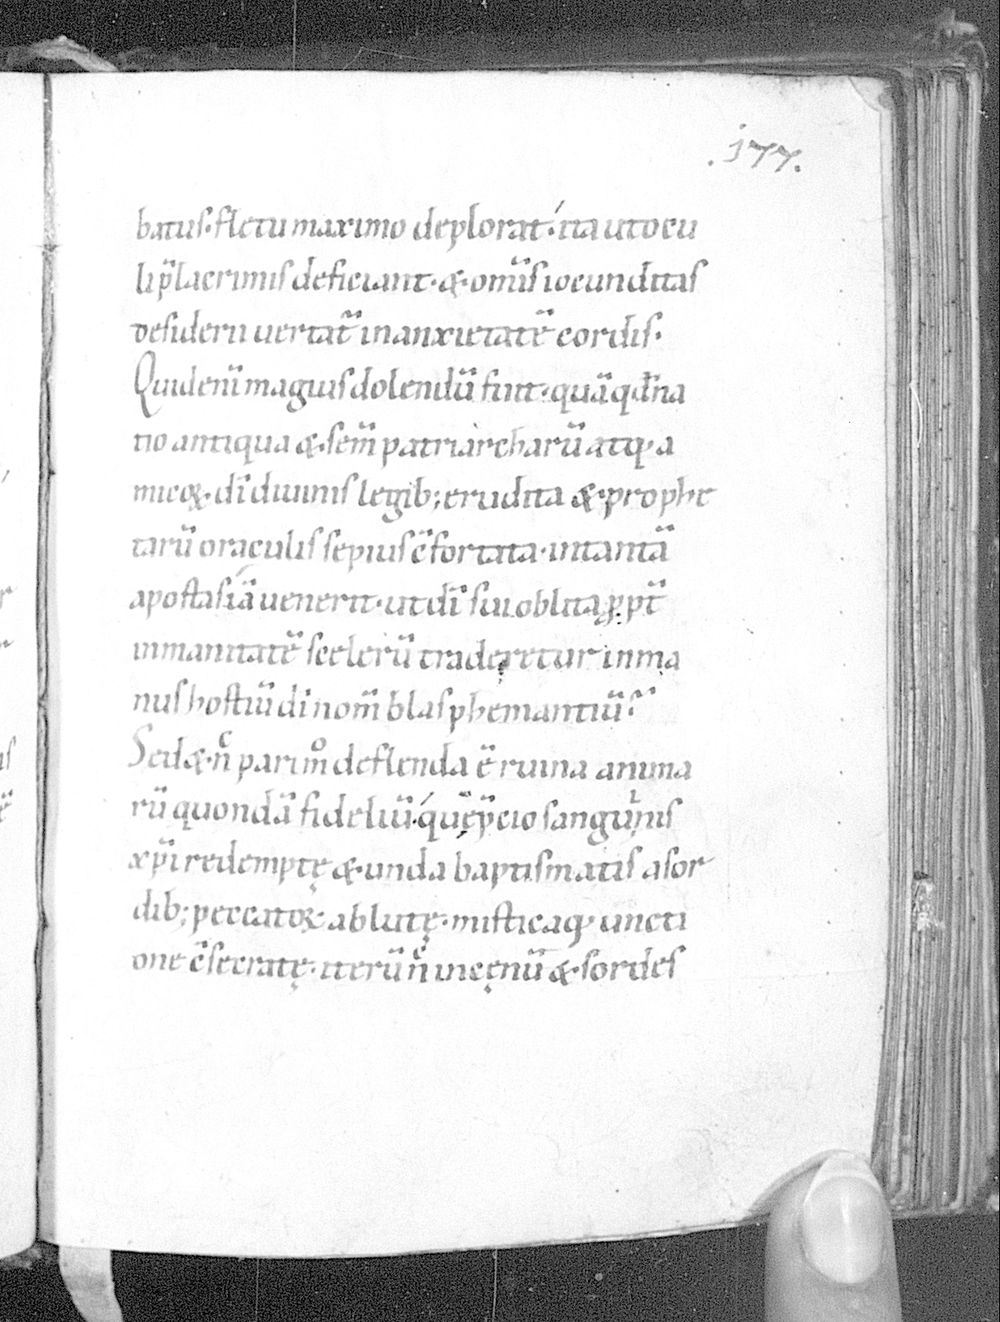 .177.
batus· fletu maximo deplorat· ita ut ocu
li p̄ lacrimis deficiant· & om̄is iocunditas
desiderii vertat̄ in anxietatē cordis·
Quid eni̅ magius dolendū sint· quā qd̄ na
tio antiqua & sem̄ patriarcharū atq; a
micoꝝ· dī diuinis legib; erudita & prophe
tarū oraculis sepius c̄fortata· in tantā
apostasiā uenerit· ut dī sui oblita ꝓpt̄
inmanitatē scelerū traderetur in ma
nus hostiū dī nom̄ blasphemantiū·
Sed & n̄c parum̊ deflenda ē ruina anima
rū quondā fideliū· quę p̄cio sanguinis
xp̄i redemptę & unda baptismatis a sor
dib; peccatoꝝ ablutę· misticaq; uncti
one c̄secratę· iterū n̄c in cęnū & sordes